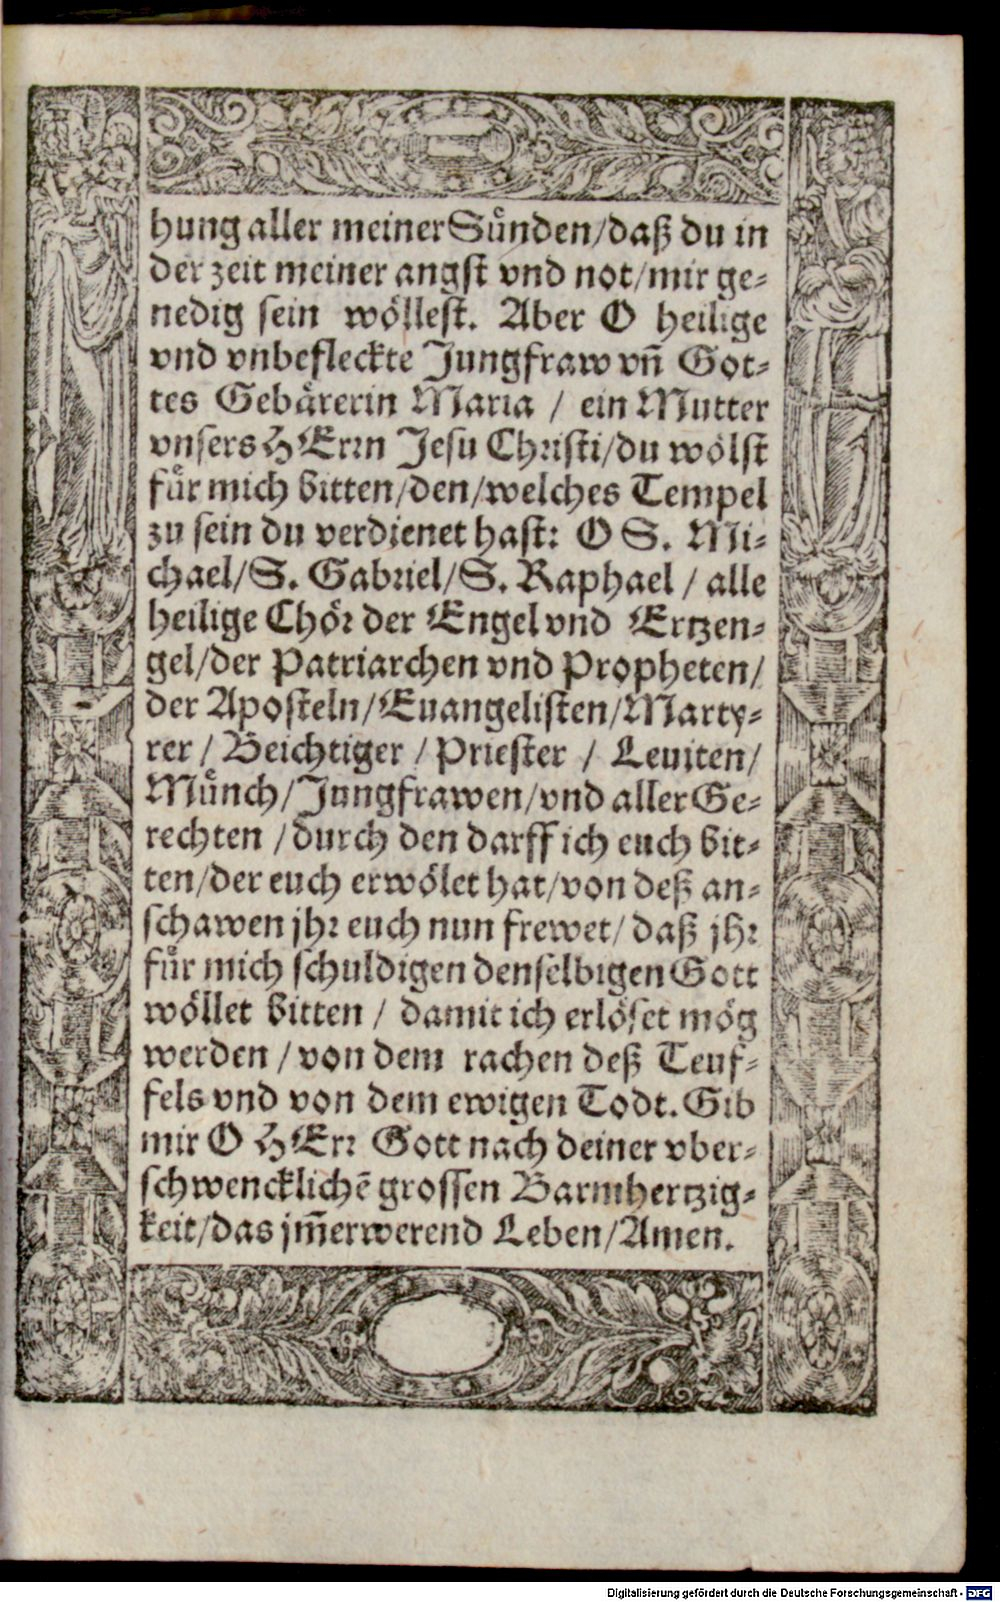 hung aller meiner Sůnden/daß du in
der zeit meiner angst vnd not/mir ge⸗
nedig sein wöllest. Aber O heilige
vnd vnbefleckte Jungfraw vñ Got⸗
tes Gebårerin Maria / ein Mutter
vnsers HErrn Jesu Christi/du wölst
fůr mich bitten/den/welches Tempel
zu sein du verdienet hast: O S. Mi⸗
chael/S. Gabriel/S. Raphael / alle
heilige Chör der Engel vnd Ertzen⸗
gel/der Patriarchen vnd Propheten/
der Aposteln/Euangelisten/Marty⸗
rer / Beichtiger / Priester / Leuiten/
Můnch/Jungfrawen/vnd aller Ge⸗
rechten /durch den darff ich euch bit⸗
ten/der euch erwölet hat/von deß an⸗
schawen jhr euch nun frewet/ daß jhr
fůr mich schuldigen denselbigen Gott
wöllet bitten / damit ich erlöset mög
werden /von dem rachen deß Teuf⸗
fels vnd von dem ewigen Todt. Gib
mir O HErr Gott nach deiner vber⸗
schwencklichē grossen Barmhertzig⸗
keit/das jm̄erwerend Leben/Amen.
Digitalisierung gefördert durch die Deutsche Forschungsgemeinschaft - DFG